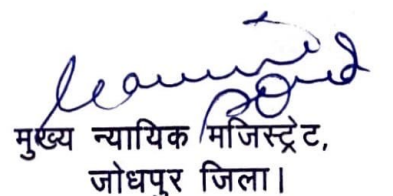 मुख्य न्यायिक मजिस्ट्रेट,
जोधपुर जिला।